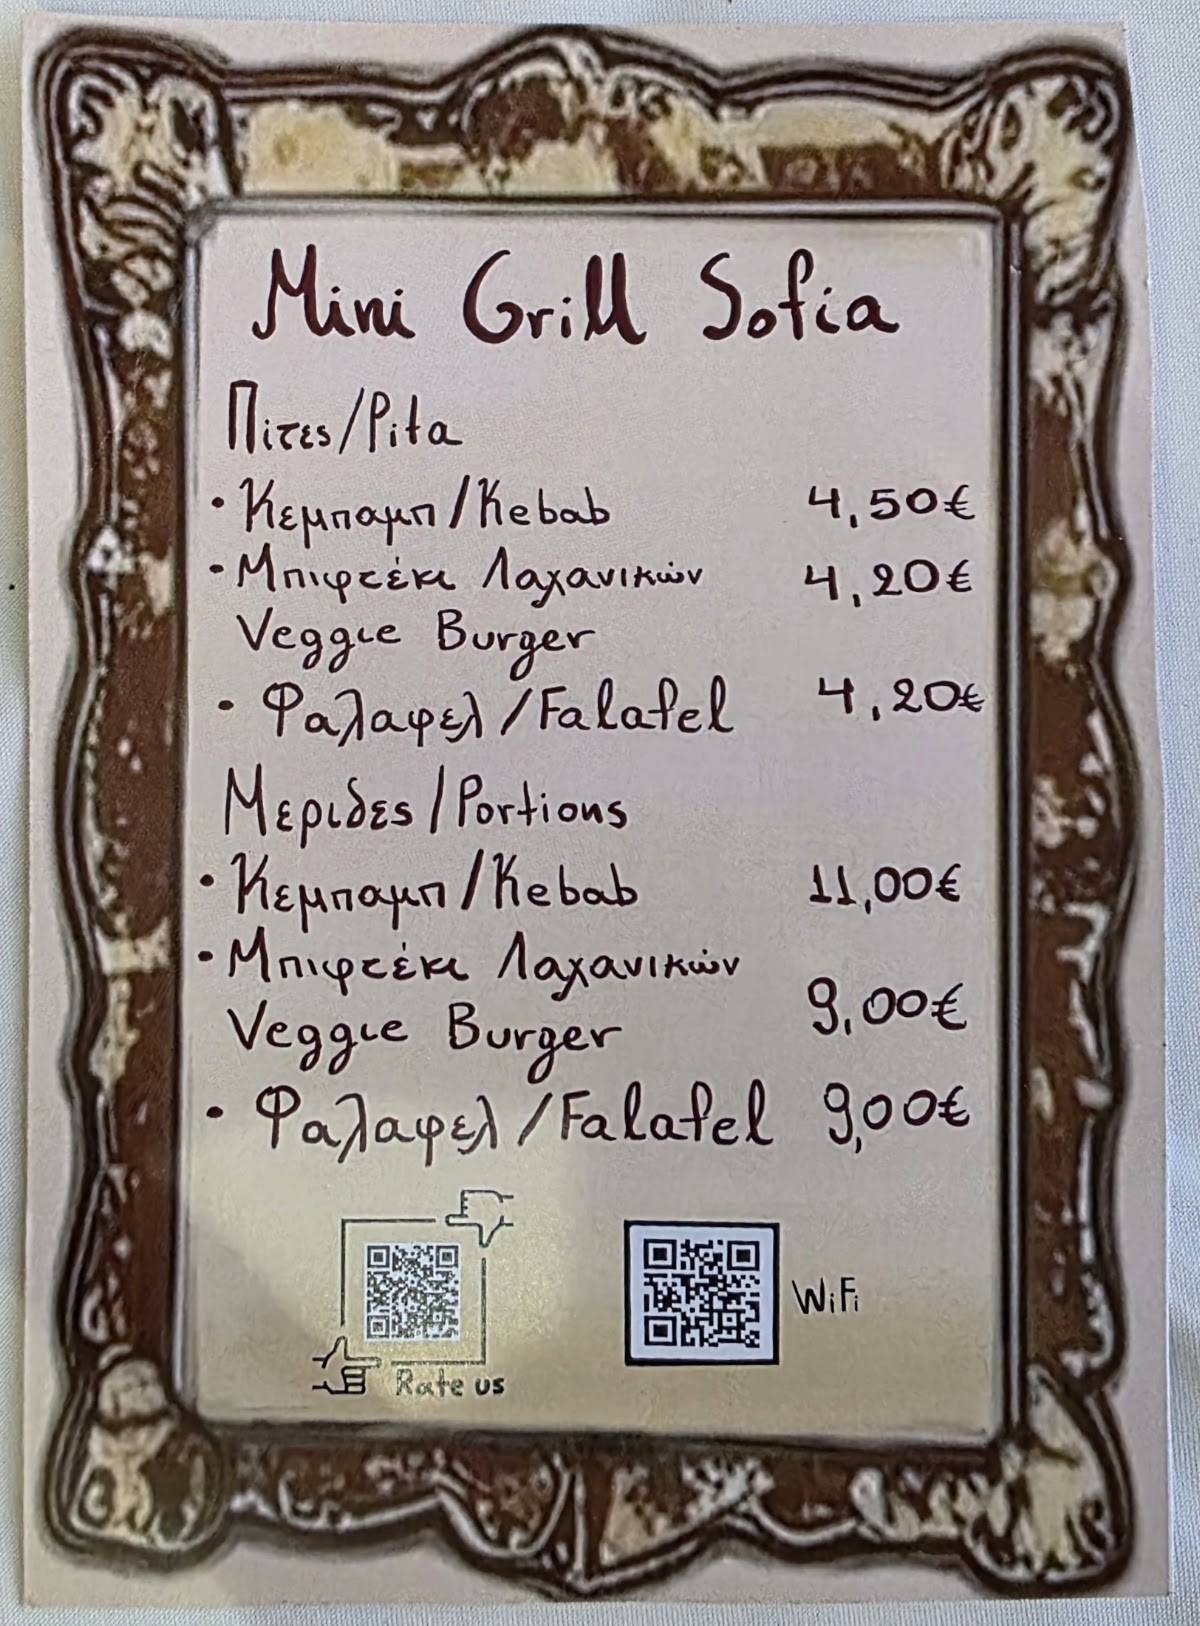 Mini Grill Sofia
Πιτες/Pita
• Κεμπαμπ/Kebab 4,50€
• Μπιφτέκι Λαχανικών 4,20€
Veggie Burger
• Φαλαφελ/Falafel 4,20€
Μεριδες/Portions
• Κεμπαμπ/Kebab 11,00€
• Μπιφτέκι Λαχανικών
Veggie Burger 9,00€
• Φαλαφελ/Falafel 9,00€
WiFi
Rate us